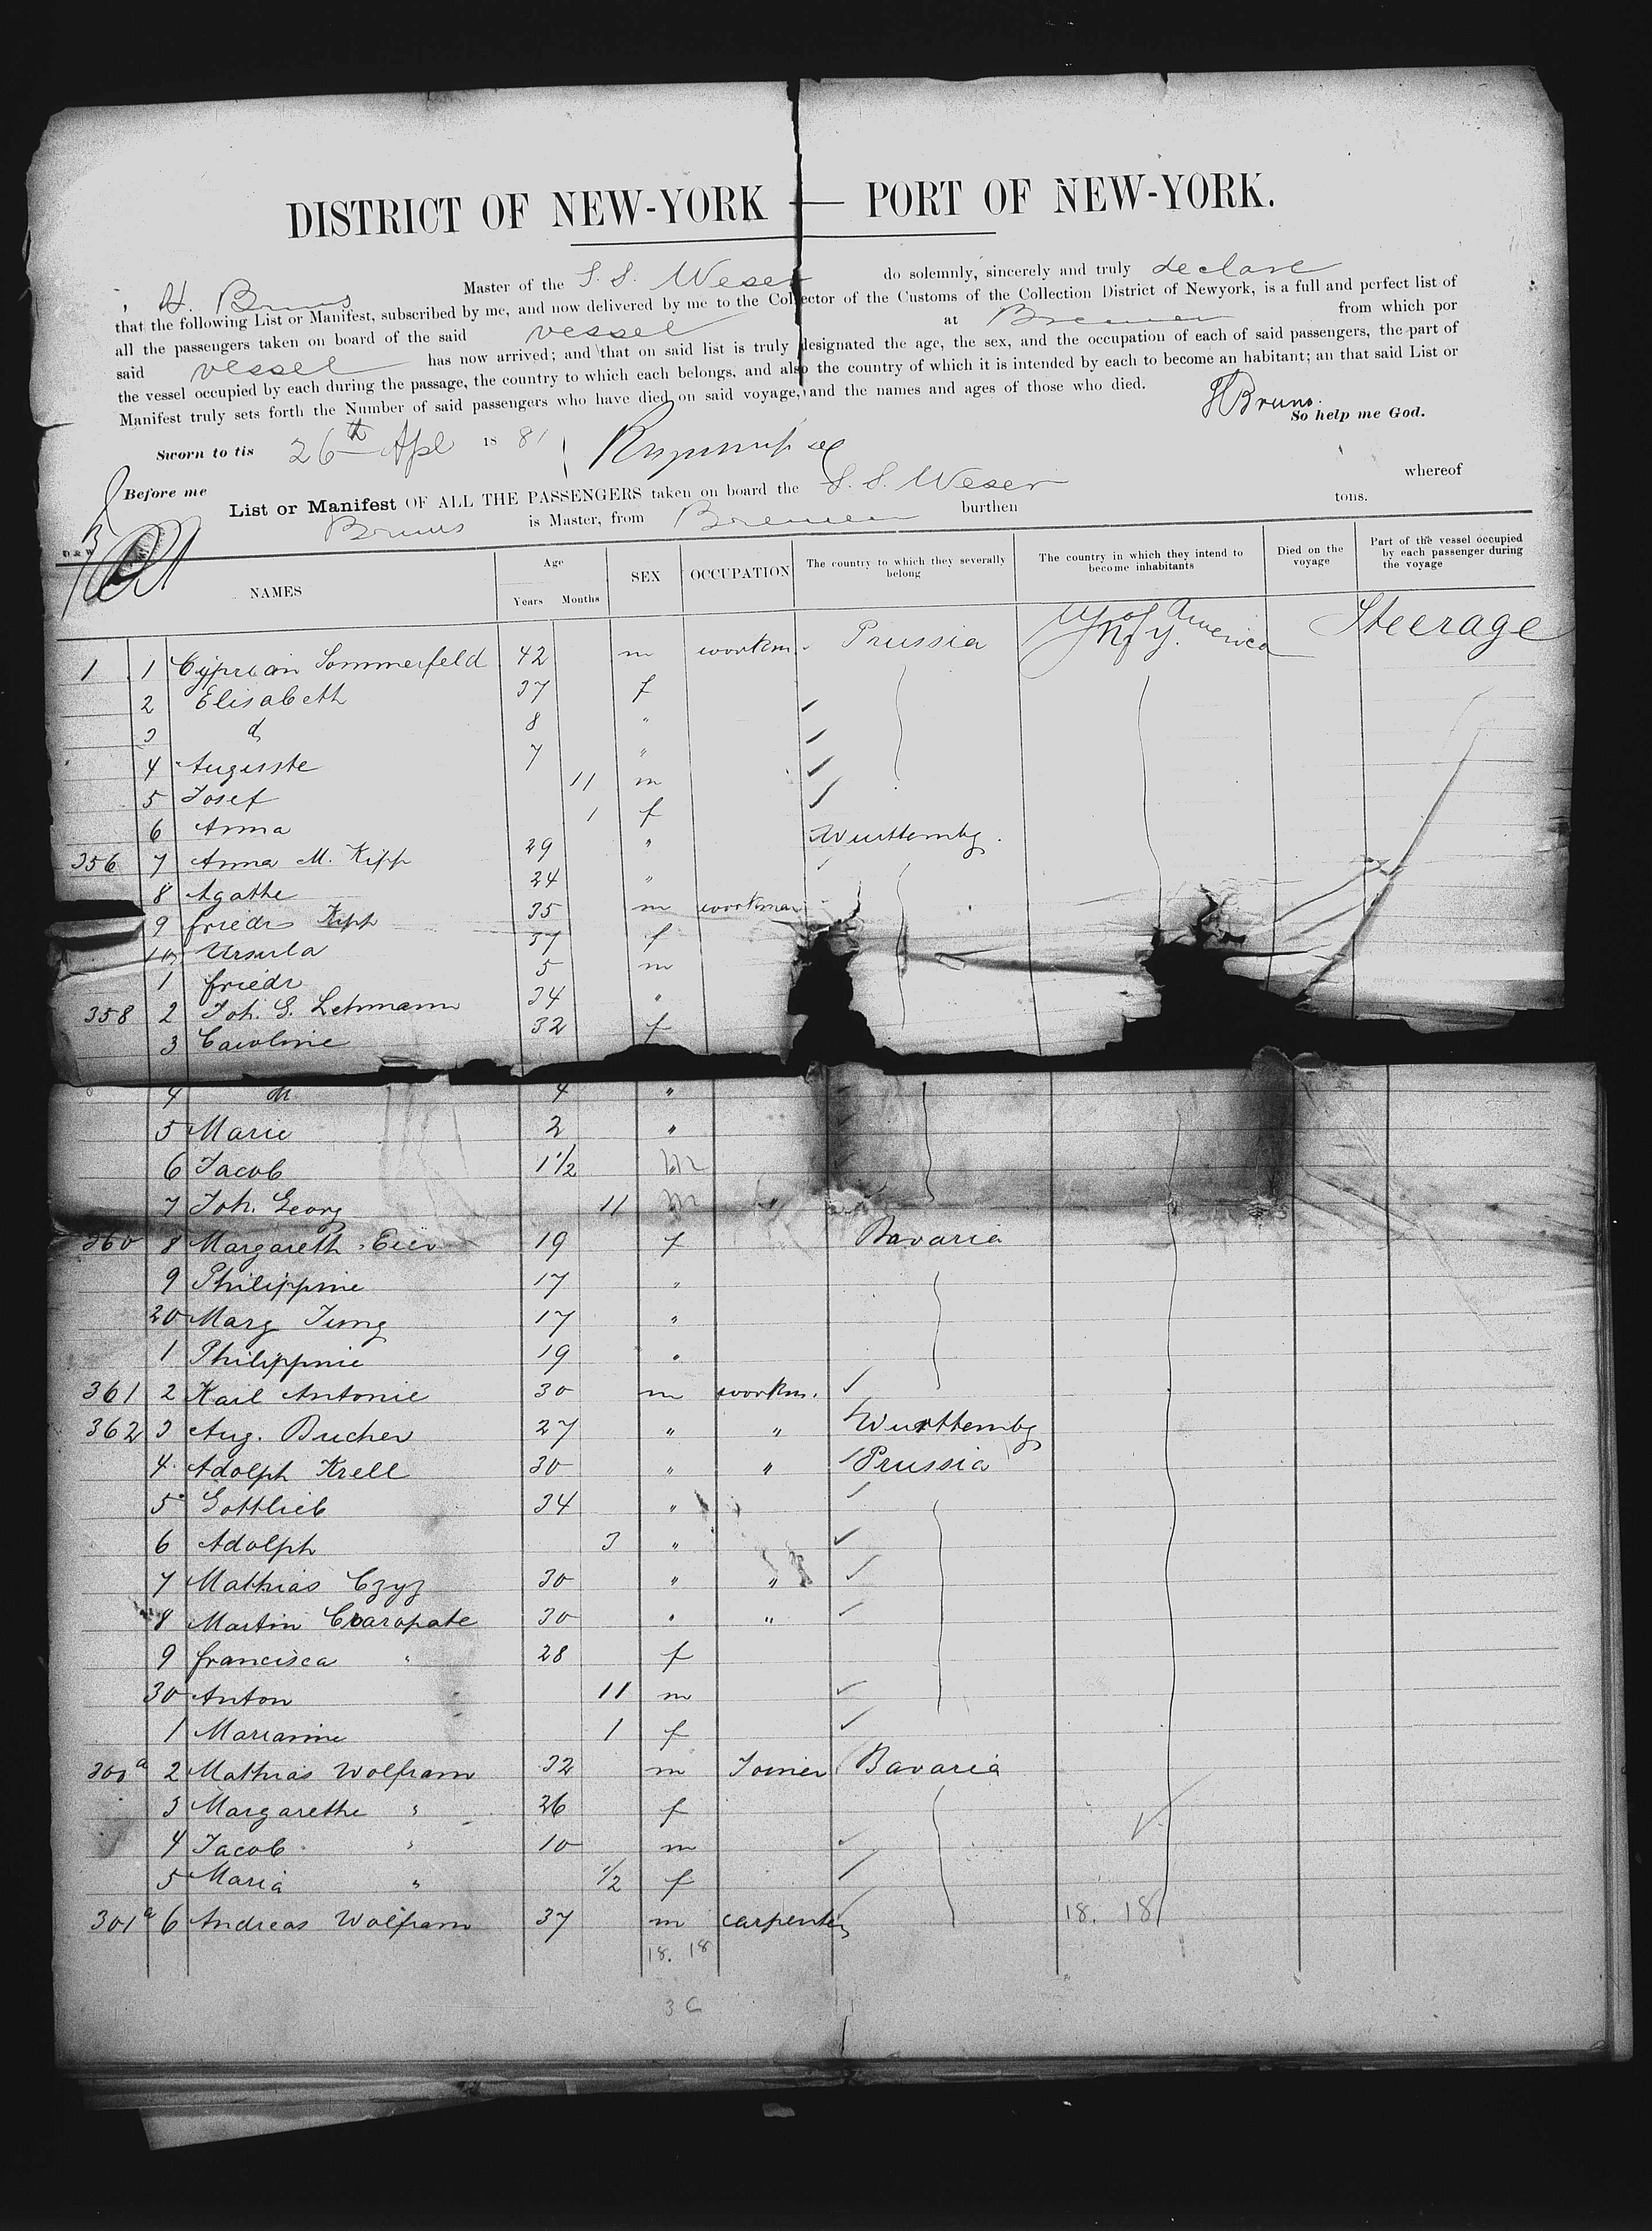 DISTRICT OF NEW-YORK — PORT OF NEW-YORK.
I, H. Bruns Master of the S. S. Weser do solemnly, sincerely and truly declare
that the following List or Manifest, subscribed by me, and now delivered by me to the Collector of the Customs of the Collection District of Newyork, is a full and perfect list of
all the passengers taken on board of the said vessel at Bremen from which por
said vessel has now arrived; and that on said list is truly designated the age, the sex, and the occupation of each of said passengers, the part of
the vessel occupied by each during the passage, the country to which each belongs, and also the country of which it is intended by each to become an habitant; an that said List or
Manifest truly sets forth the Number of said passengers who have died on said voyage, and the names and ages of those who died.
HBruns.
So help me God.
Sworn to tis 26th Apl 1881
Before me
List or Manifest OF ALL THE PASSENGERS taken on board the S. S. Weser whereof
Bruns is Master, from Bremen burthen tons.
D & W
NAMES Age Years Months SEX OCCUPATION The country to which they severally belong The country in which they intend to become inhabitants Died on the voyage Part of the vessel occupied by each passenger during the voyage
1 1 Cyprian Sommerfeld 42 m workm. Prussia U S of America N. Y. Steerage
2 Elisabeth 37 f
3 d 8 "
4 Auguste 7 "
5 Josef 11 m
6 Anna 1 f
356 7 Anna M. Kipp 29 " Wurttembg.
8 Agathe 24 "
9 friedr Kipp 35 m workman
10 Ursula 37 f
1 friedr 5 m
358 2 Joh. G. Lehmann 34 "
3 Caroline 32 f
4 do 4 "
5 Marie 2 "
6 Jacob 1 1/2 m
7 Joh. Georg 11 m "
360 8 Margareth 19 f Bavaria
9 Philippine 17 "
20 Marg Jung 17 "
1 Philippine 19 "
361 2 Karl Antonie 30 m workm.
362 3 Aug. Bucher 27 " " Wurttembg
4 Adolph Krell 30 " " Prussia
5 Gottlieb 34 "
6 Adolph 3 "
7 Mathias Czyz 30 " "
8 Martin Czarapate 30 " "
9 francisca " 28 f
30 Anton 11 m
1 Marianne 1 f
300a 2 Mathias Wolfram 32 m Joiner Bavaria
3 Margarethe " 26 f
4 Jacob " 10 m
5 Maria " 1/2 f
301a 6 Andreas Wolfram 37 m carpenter 18. 18
18. 18
36